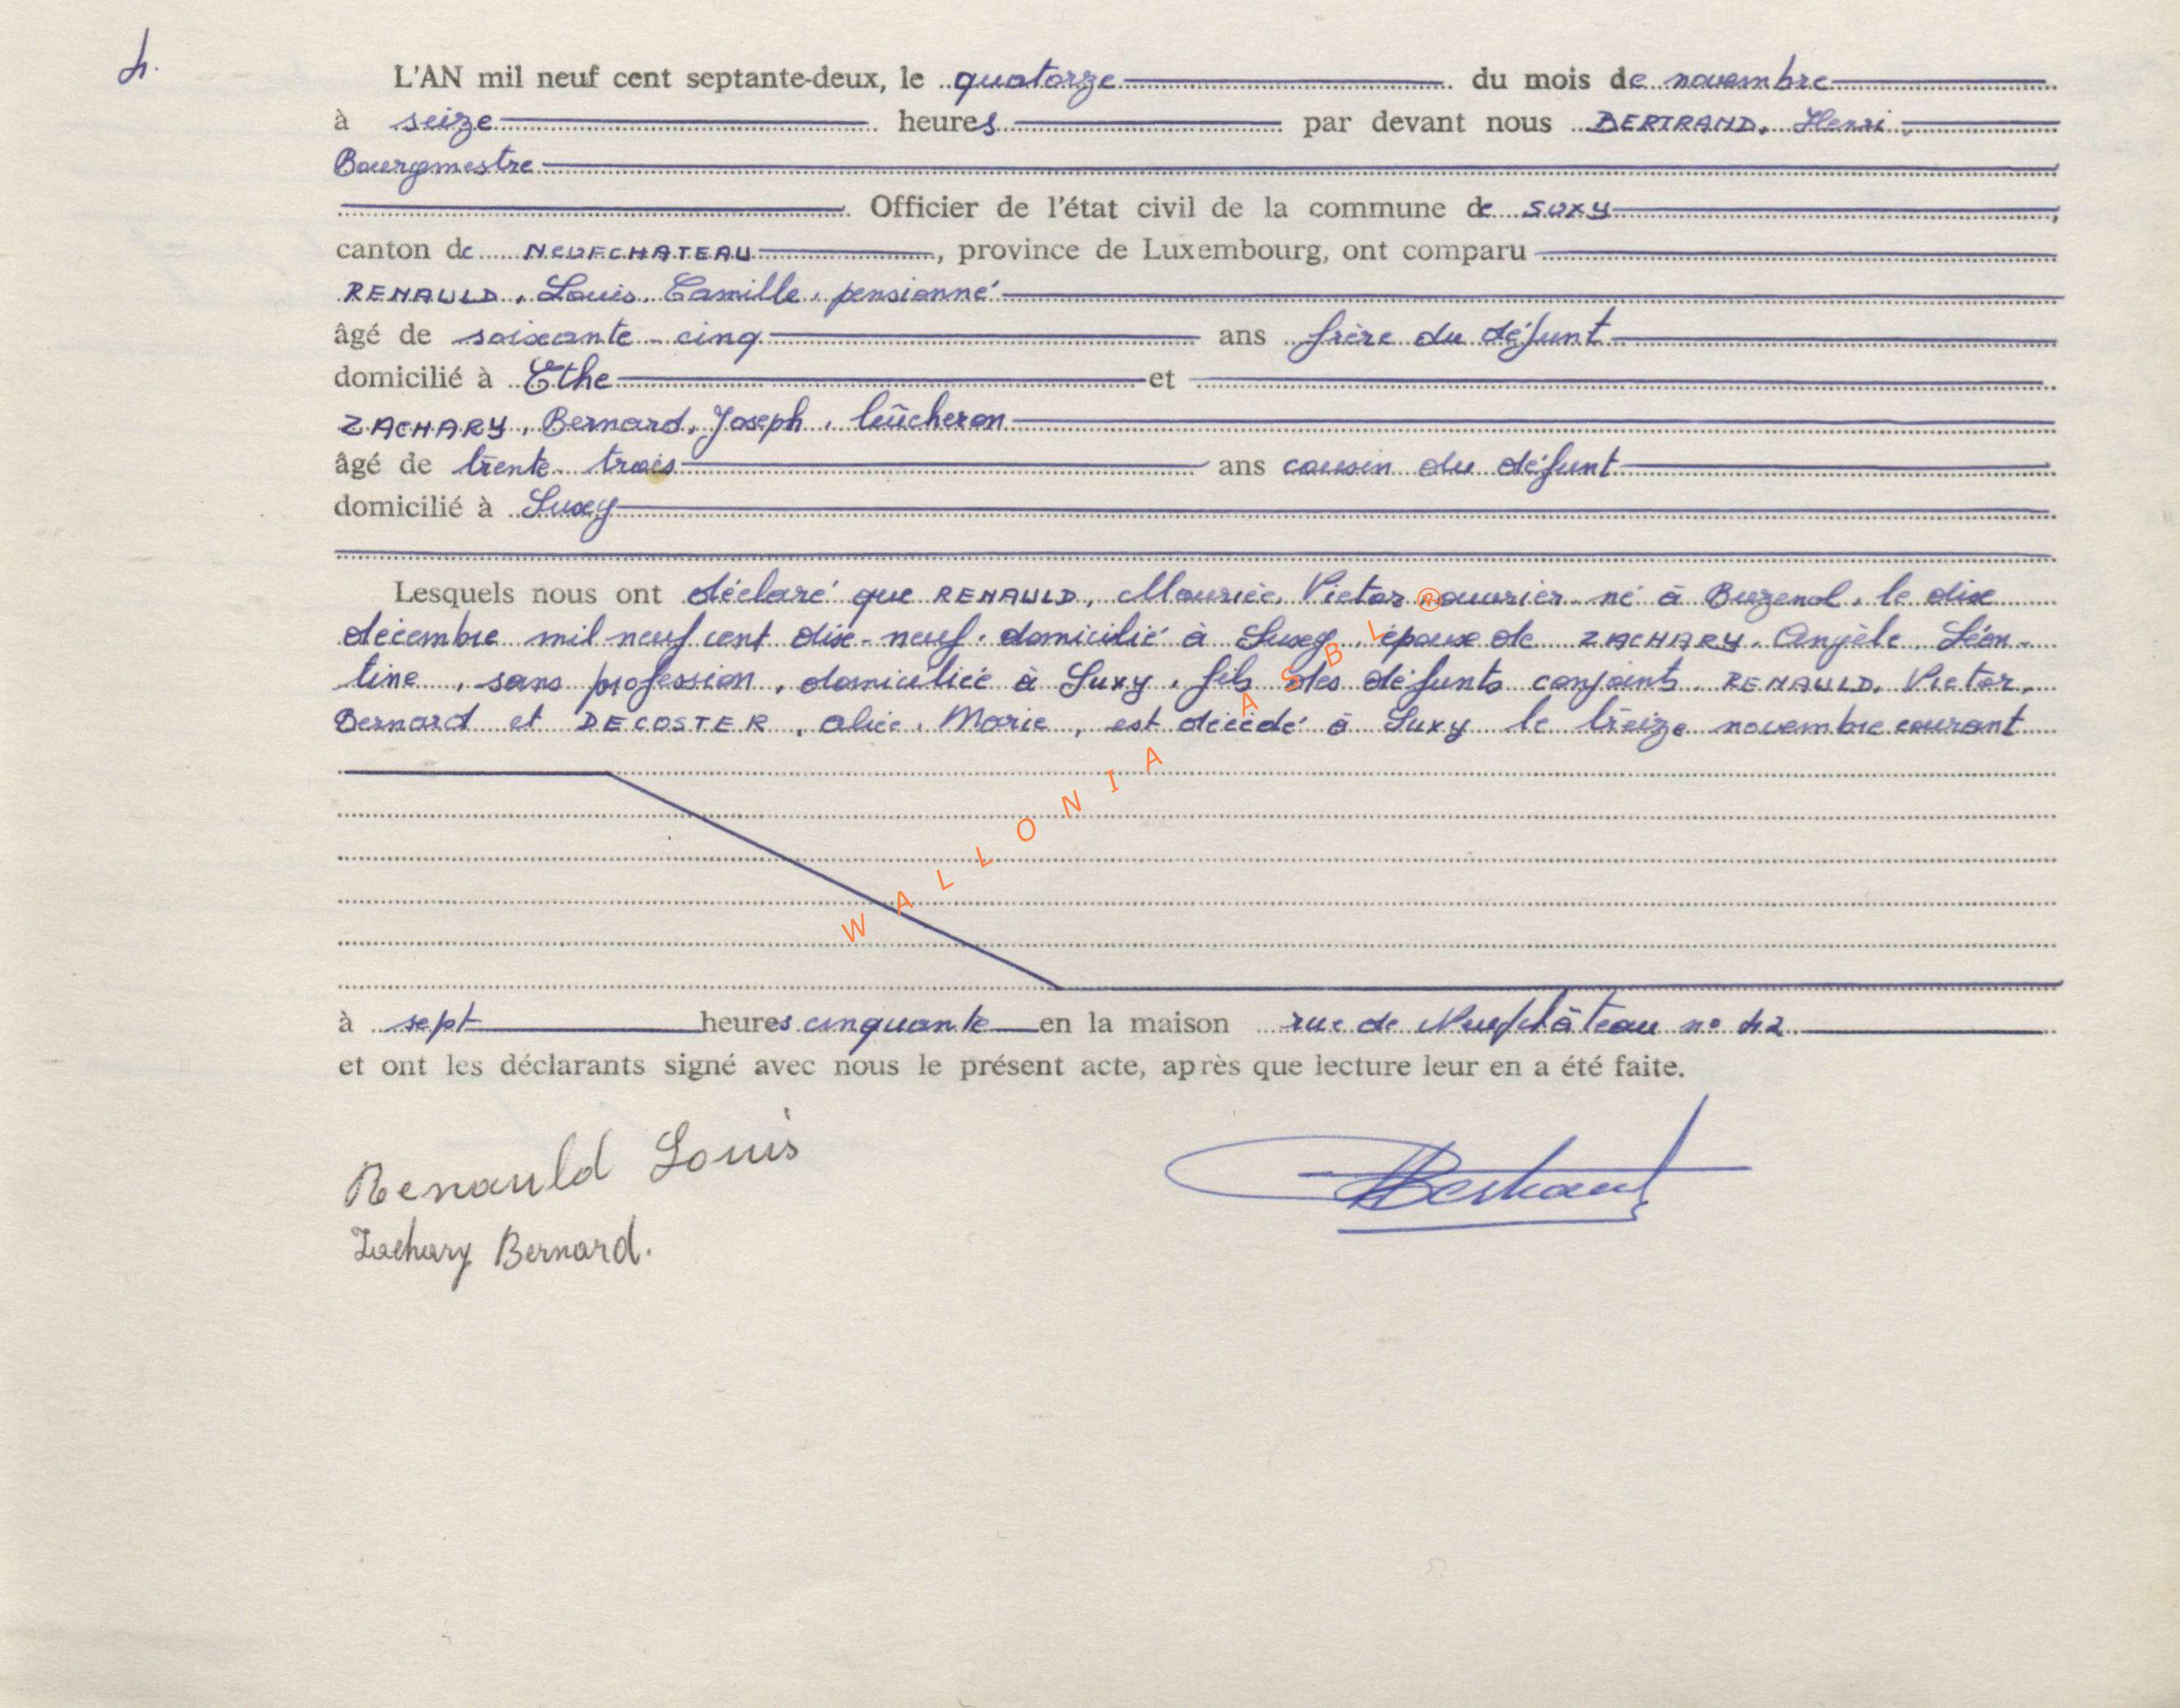 4.
L'AN mil neuf cent septante-deux, le quatorze du mois de novembre
à seize heures par devant nous BERTRAND, Henri,
Bourgmestre
Officier de l'état civil de la commune de SUXY,
canton de NEUFCHATEAU, province de Luxembourg, ont comparu
RENAULD, Louis, Camille, pensionné
âgé de soixante-cinq ans frère du défunt
domicilié à Ethe et
ZACHARY, Bernard, Joseph, bûcheron
âgé de trente-trois ans cousin du défunt
domicilié à Suxy
Lesquels nous ont déclaré que RENAULD, Maurice, Victor, ouvrier né à Buzenol, le dix
décembre mil neuf cent dix-neuf, domicilié à Suxy, époux de ZACHARY, Angèle, Léon-
tine, sans profession, domiciliée à Suxy, fils des défunts conjoints RENAULD, Victor,
Bernard et DECOSTER, Alice, Marie, est décédé à Suxy le treize novembre courant
à sept heures cinquante en la maison rue de Neufchâteau n° 42
et ont les déclarants signé avec nous le présent acte, après que lecture leur en a été faite.
Renauld Louis
Zachary Bernard.
HBertrand
WALLONIA ASBL ®